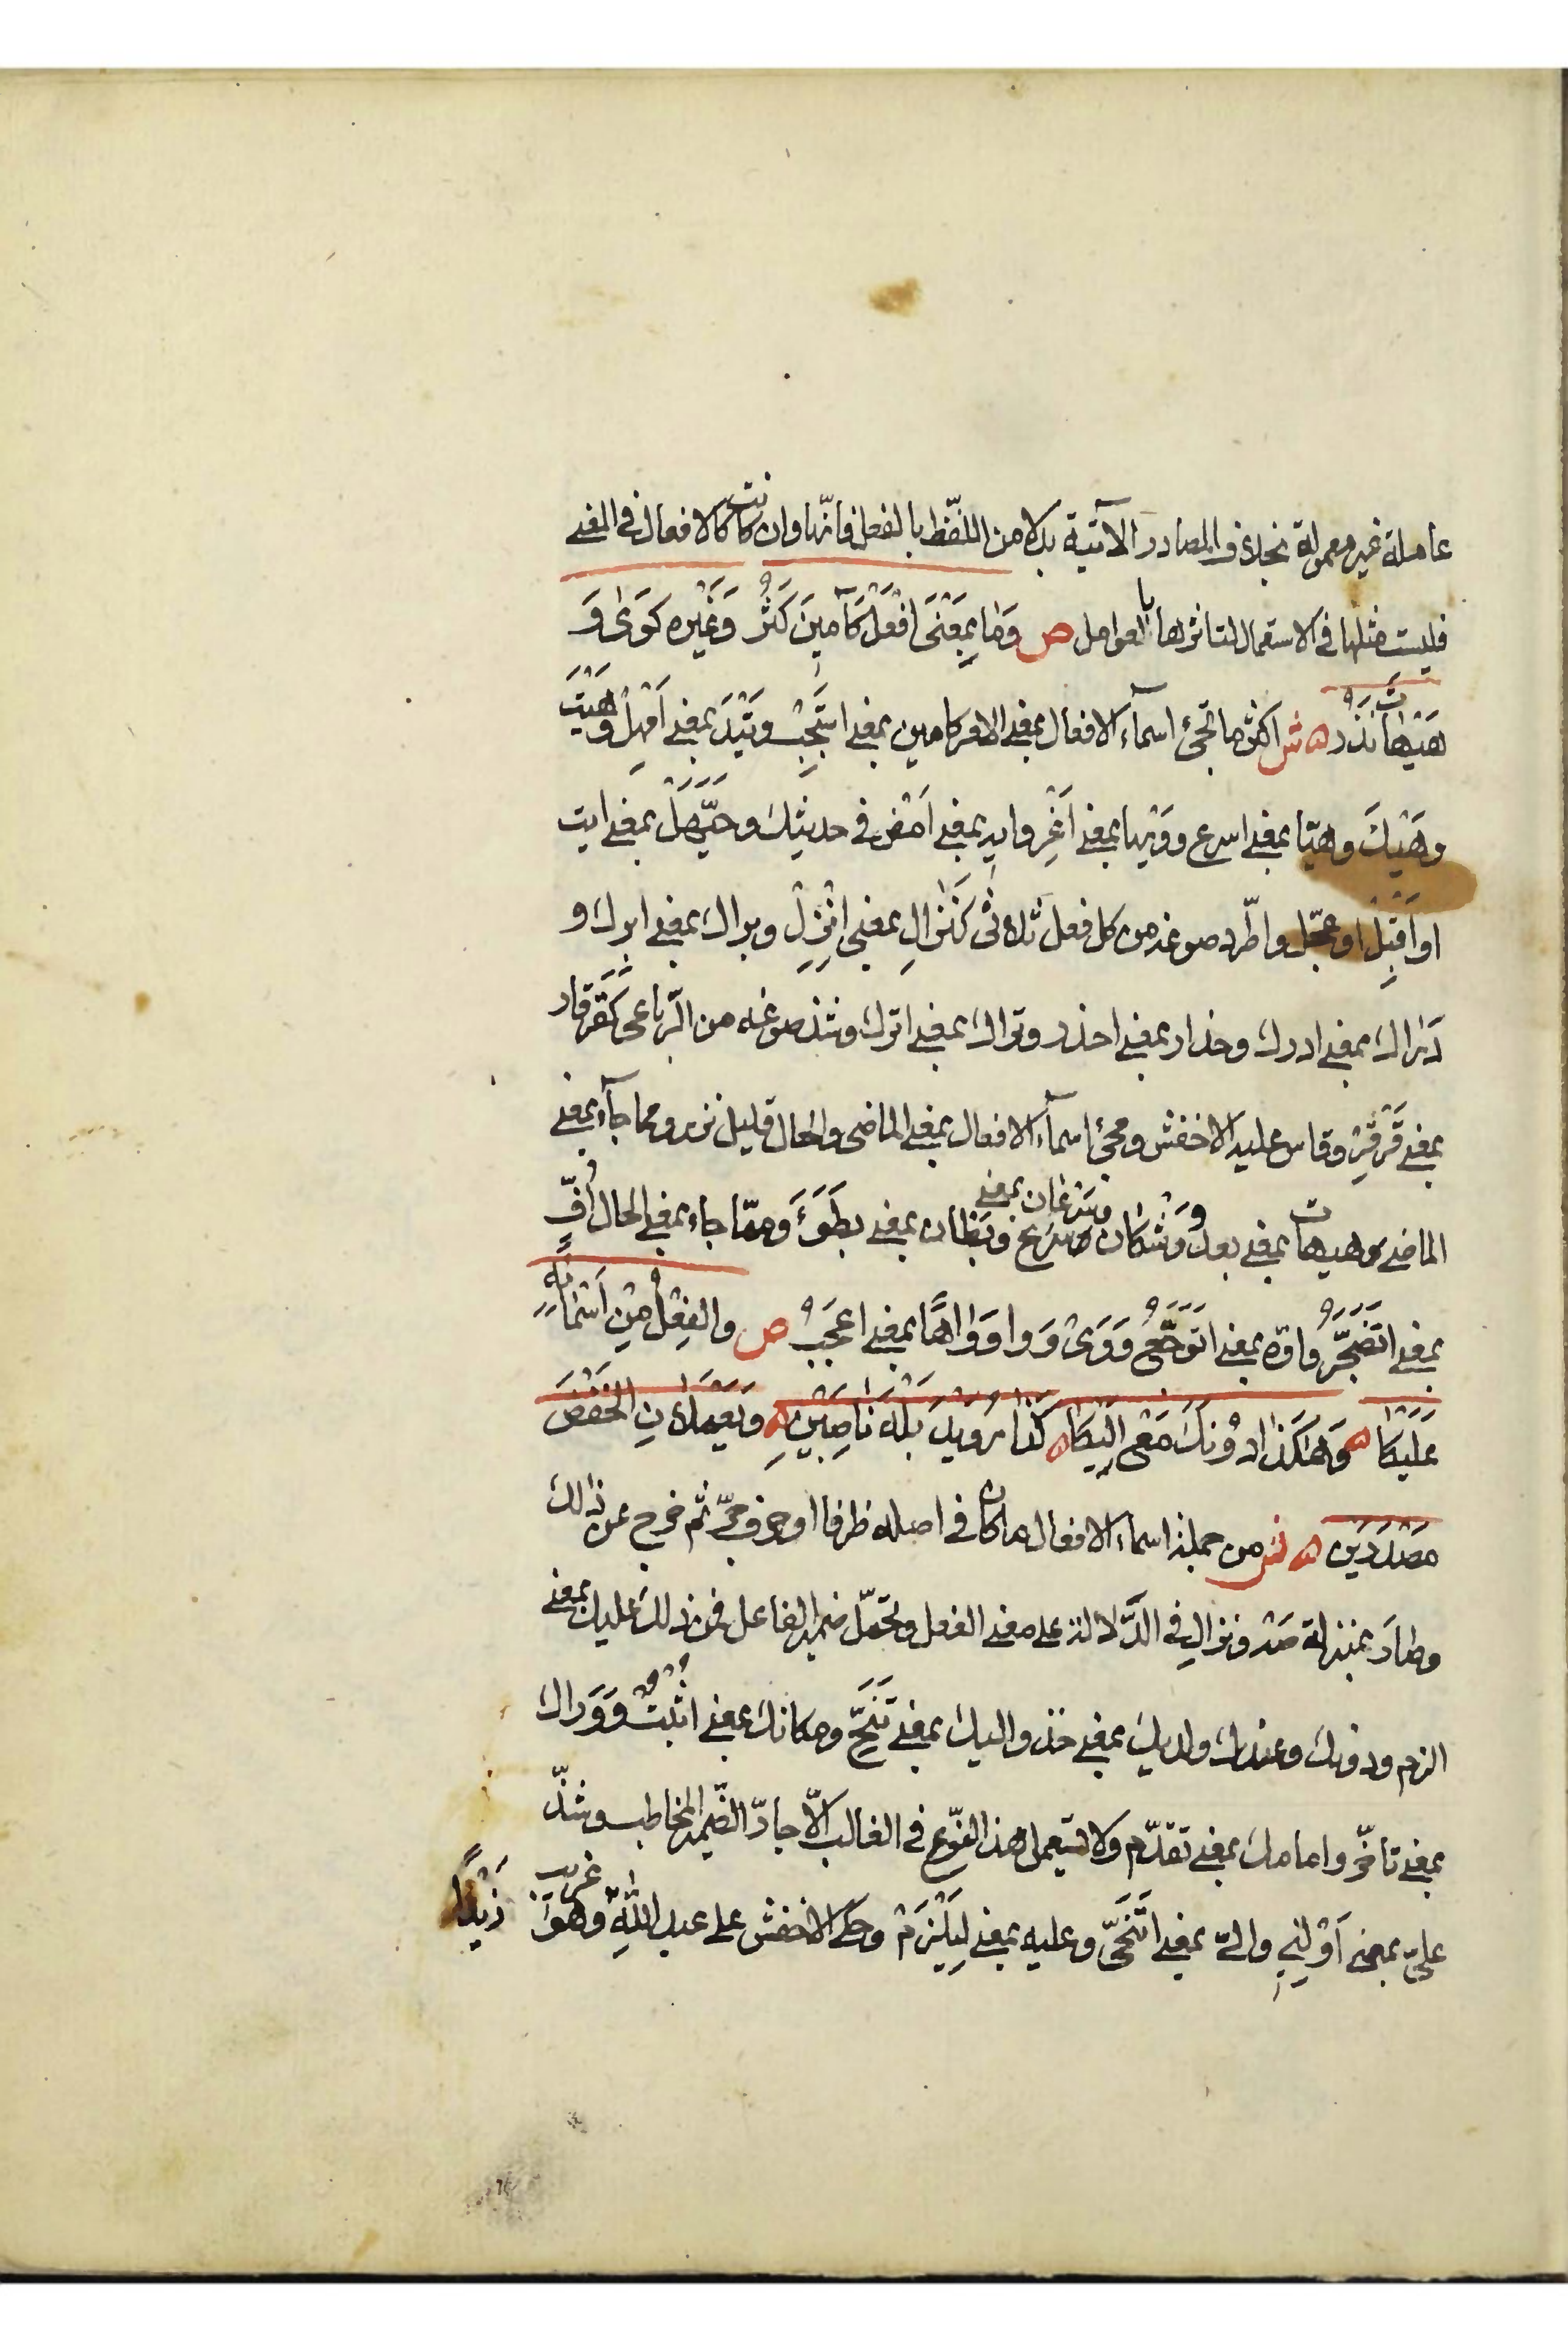 عاملة غير معمولة بخلاف المصادر الآتية بدلا من اللفّظ بالفعل فانّها وان كانت كالافعال في المعنے
فليست مثلها في الاستعمال لتاثرها بالعوامل ص وَمَا بِمَعْنَى افْعَلْ كَآمِينَ كَثُرْ وَغَيْرُه كوَىْ وَ
هَيْهَاتَ نَزُرْ ه ش اكثر ما تجئ اسمآء الافعال بمعنے الامر كامين بمعنے استَجِبْ وتَيْدَ بمعنے اَمْهِلْ وهَيْتَ
وهَيْكَ وهيّا بمعنے اسرع ووَيْها بمعنے اَغْرِ وايه بمعنے اَمْض في حديثِك وحَيَّهَلْ بمعنے ايت
او اَقْبِلْ او عجّل واطّرد صوغه من كل فعل ثلاثى كَنَزَالِ بمعنى انْزِلْ وبراك بمعنے ابرك و
دَرَاك بمعنے ادرك وحذار بمعنے احذر وتراك بمعنے اترك وشذ صوغه من الرّباعى كَقَرْقار
بمعنے قَرْقِرْ وقاس عليه الاخفش ومجئ اسمآء الافعال بمعنے الماضى والحال قليل نزر ومما جآء بمعنے
الماضے هيهات بمعنے بعد ووَشْكَان وسَرْعَان بمعنے سَرُعَ وبَطان بمعنے بَطُوَءَ وممّا جاء بمعنے الحال اُفّ
بمعنے اتَضَجَّرُ واوّه بمعنے اتَوَجَّعُ وَوَىْ وَوا وَوَاهًا بمعنے اعجَبُ ص والفِعْلُ مِنْ اَسْمَائِهِ
عَلَيْكَا ه وَهَكَذا دُوْنَكَ مَعْ اِلَيْكَا ه كَذا رُوَيْدَ بَلْهَ نَاصِبَيْنِ ه وَيَعْمَلانِ الخَفْضَ
مَصْدَرَيْنِ ه ش من جملة اسماء الافعال ما كان في اصله ظرفا او حرف جرّ ثم خرج عن ذالك
وصَارَ بمنزلة صَهْ ونزالِ في الدَّلالة على معنے الفعل وتحمّل ضمير الفاعل فمن ذلك عليك بمعنے
الزم ودونك وعندك ولديك بمعنے خذ واليك بمعنے تَنَحَّ ومكانك بمعنے اثْبُتْ وَوَراك
بمعنے تاخّر وامامك بمعنے تقدّم ولا يستعمل هذا النوّع في الغالب الاّ جارّ الضّمير المخاطب وشذّ
علىّ بمعنے اَوْلِنِي والىّ بمعنے اتَنَحَّى وعليه بمعنے لِيَلْزَمْ وحكے الاخفش على عبد اللهِ زَيْدًا وهوَ غريب